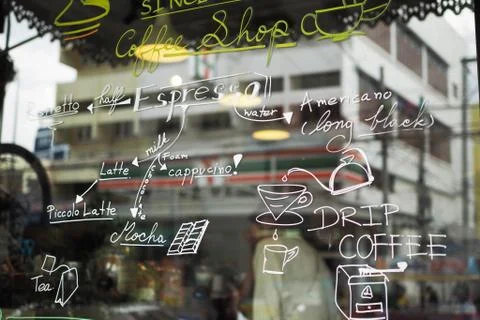 SINCE
Coffee Shop
Espresso
half
Ristretto
water
Americano
(long black)
milk
Foam
Latte
cappucino!
Piccolo Latte
Mocha
DRIP
COFFEE
Tea